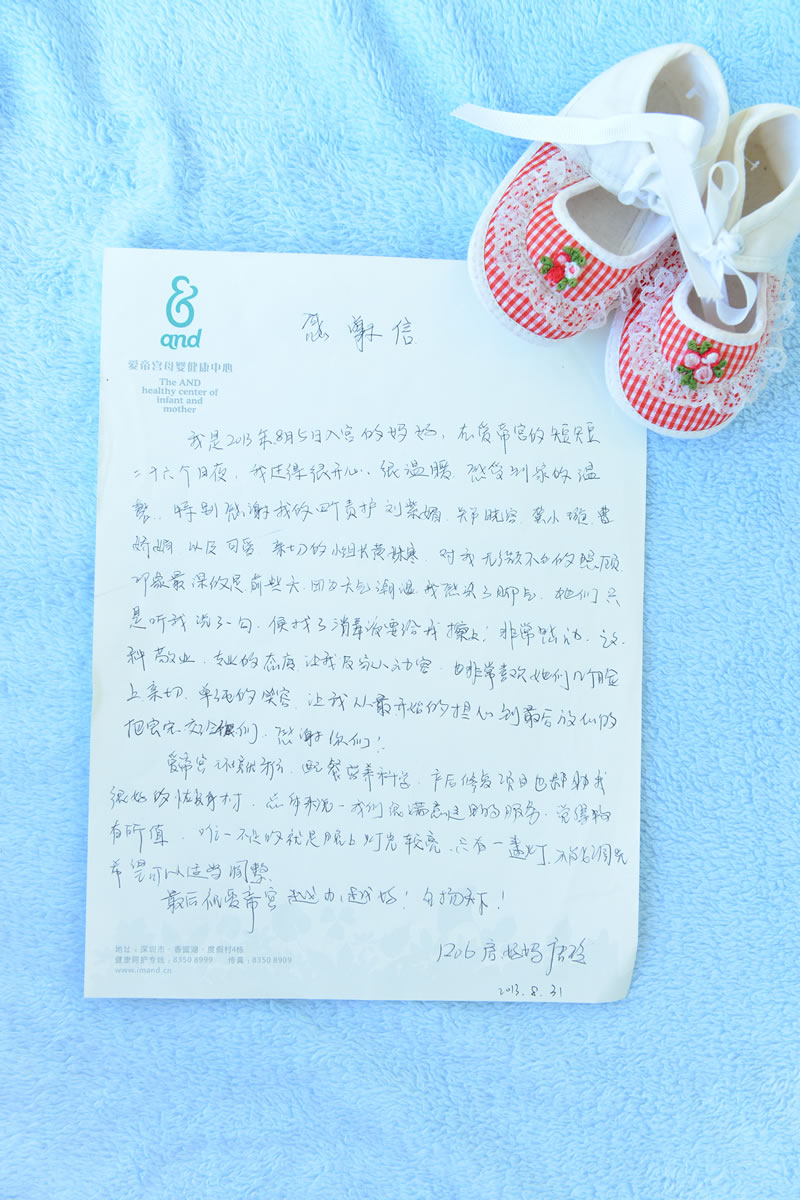 &
and
爱帝宫母婴健康中心
The AND
healthy center of
infant and
mother
感谢信
我是2013年8月5日入宫的妈妈,在爱帝宫的短短
二十六个日夜,我过得很开心、很温暖,感受到家的温
馨。特别感谢我的四个责护刘紫媚、郑晓容、龚小璇、曹
娇娴以及可爱亲切的小组长黄妹寒,对我无微不至的照顾
印象最深的是前些天,因为天气潮湿,我感染了脚气,她们只
是听我说了一句,便找了消毒液要给我擦上,非常贴心。这
种敬业、专业的态度,让我及家人动容,也非常喜欢她们几个脸
上亲切、单纯的笑容,让我从最开始的担心到最后放心的
把宝宝交给你们,感谢你们!
爱帝宫环境优雅,配餐营养科学,产后修复项目也帮助我
很好的恢复身材,总体来说,我们很满意这里的服务,觉得物
有所值,唯一不足的就是晚上灯光较亮,只有一盏灯,不能调光
希望可以适当调整。
最后祝爱帝宫越办越好!名扬天下!
1206房妈妈唐
2013.8.31
地址:深圳市·香蜜湖·度假村4栋
健康呵护专线:8350 8999 传真:8350 8909
www.imand.cn